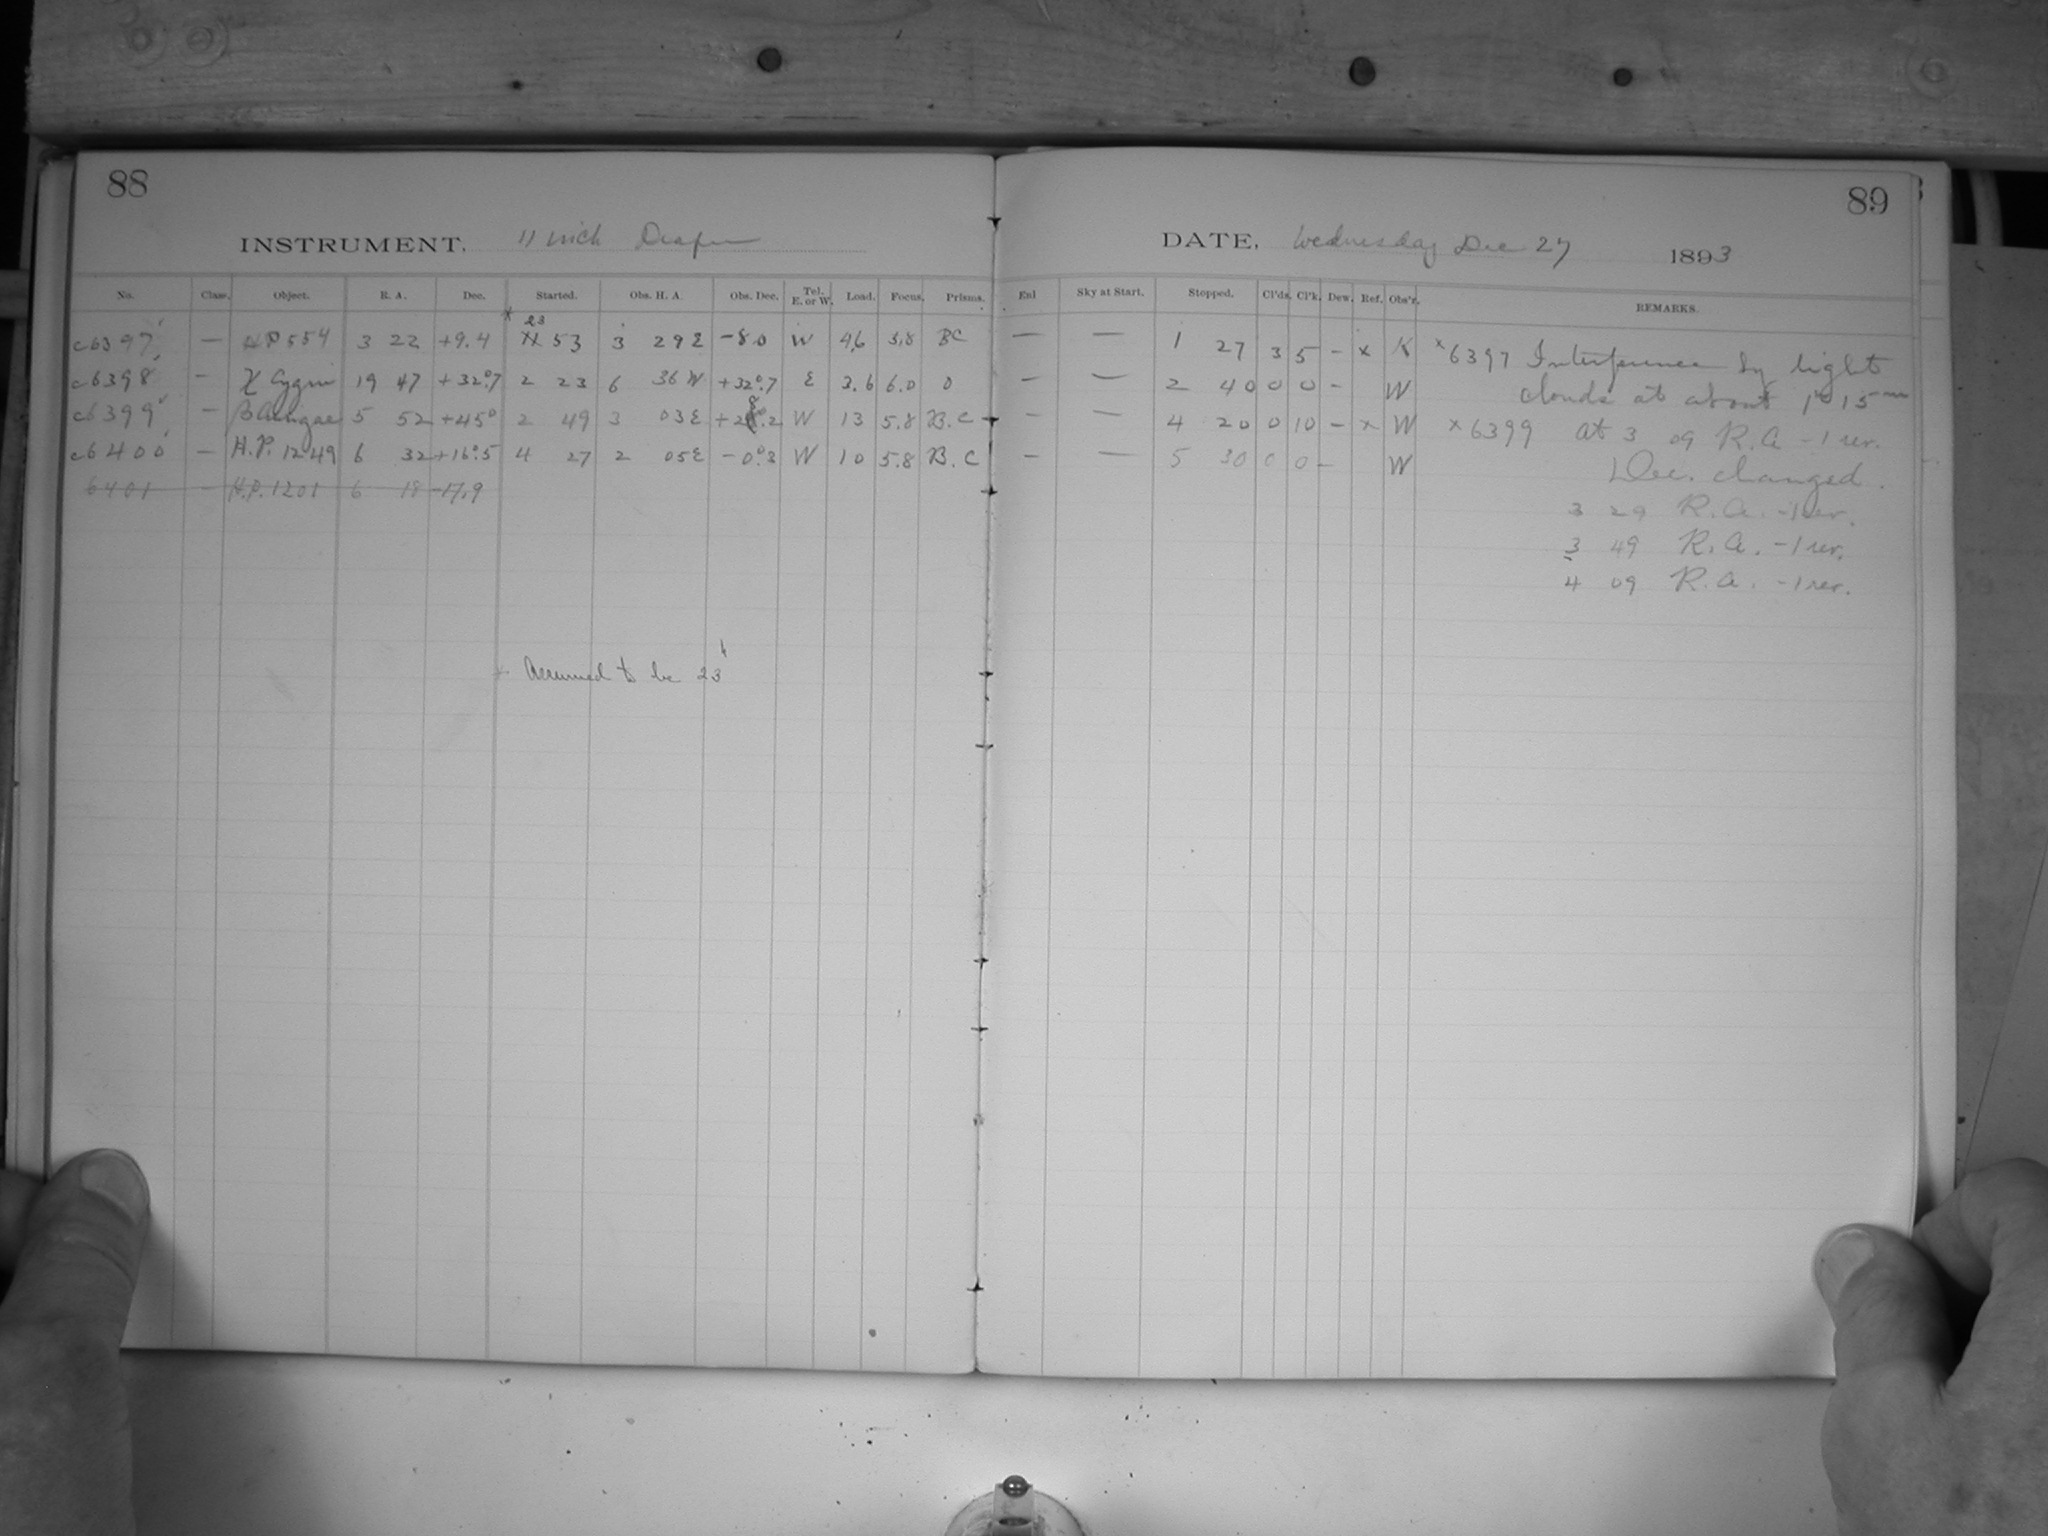 88
INSTRUMENT. 11 inch Draper
No. Class. Object. R. A. Dec. Started. Obs. H. A. Obs. Dec. Tel. E. or W. Load. Focus. Prisms.
x 23
c6397 — H.P 554 3 22 +9.4 53 3 29 E -8.0 W 46 5.8 BC
c6398 — χ Cygni 19 47 +32°.7 2 23 6 36 W +32°.7 E 3.6 6.0 0
c6399 — β Aurigae 5 52 +45° 2 49 3 03 E +28°.2 W 13 5.8 B.C
c6400 — H.P. 1249 6 32 +16°.5 4 27 2 05 E -0°.3 W 10 5.8 B.C
6401 — H.P. 1201 6 18 -17.9
+ Assumed to be 23h
89
DATE. Wednesday Dec 27 1893
Enl Sky at Start. Stopped. Cl'ds. Cl'k. Dew. Ref. Obs'r. REMARKS.
— — 1 27 3 5 - x K x6397 Interference by light
— — 2 40 0 0 - W clouds at about 1h 15m
— — 4 20 0 10 - x W x6399 at 3 09 R.A -1 rev.
— — 5 30 0 0 - W Dec. changed.
3 29 R.A. -1 rev.
3 49 R.A. -1 rev.
4 09 R.A. -1 rev.